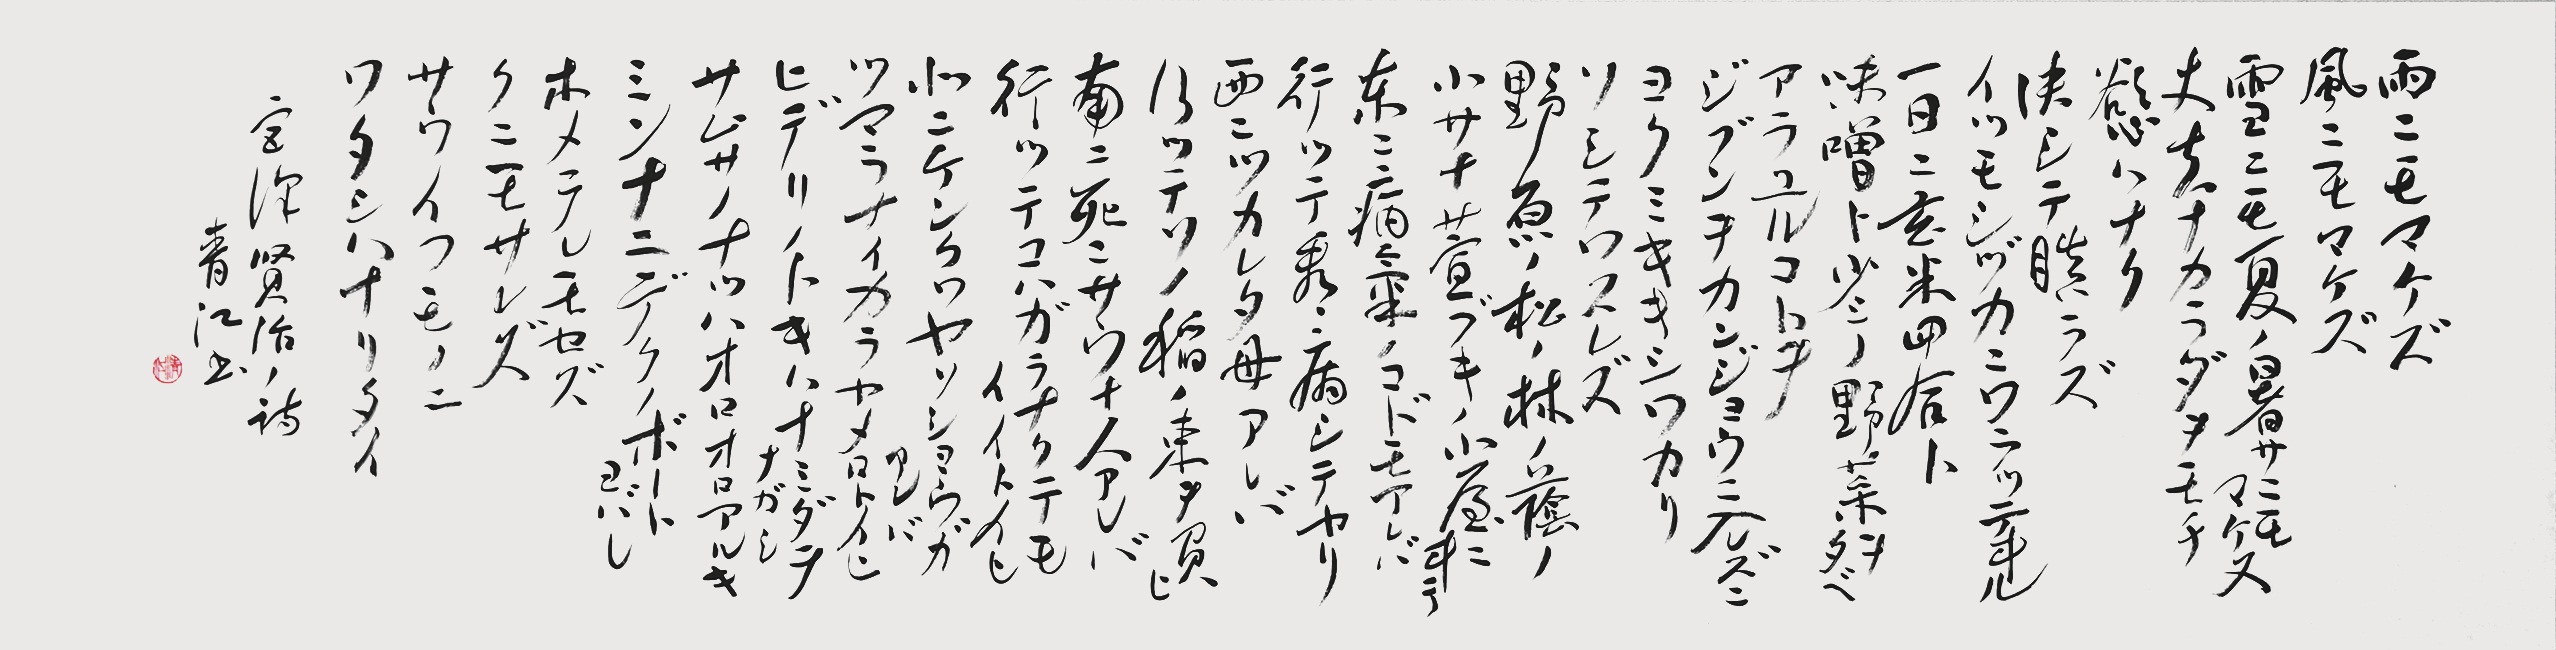 雨ニモマケズ
風ニモマケズ
雪ニモ夏ノ暑サニモマケヌ
丈夫ナカラダヲモチ
慾ハナク
決シテ瞋ラズ
イツモシヅカニワラッテヰル
一日ニ玄米四合ト
味噌ト少シノ野菜ヲタベ
アラユルコトヲ
ジブンヲカンジョウニ入レズニ
ヨクミキキシワカリ
ソシテワスレズ
野原ノ松ノ林ノ蔭ノ
小サナ萱ブキノ小屋ニヰテ
東ニ病気ノコドモアレバ
行ッテ看病シテヤリ
西ニツカレタ母アレバ
行ッテソノ稲ノ束ヲ負ヒ
南ニ死ニサウナ人アレバ
行ッテコハガラナクテモイイトイヒ
北ニケンクヮヤソショウガアレバ
ツマラナイカラヤメロトイヒ
ヒデリノトキハナミダヲナガシ
サムサノナツハオロオロアルキ
ミンナニデクノボートヨバレ
ホメラレモセズ
クニモサレズ
サウイフモノニ
ワタシハナリタイ
宮澤賢治ノ詩
青江書